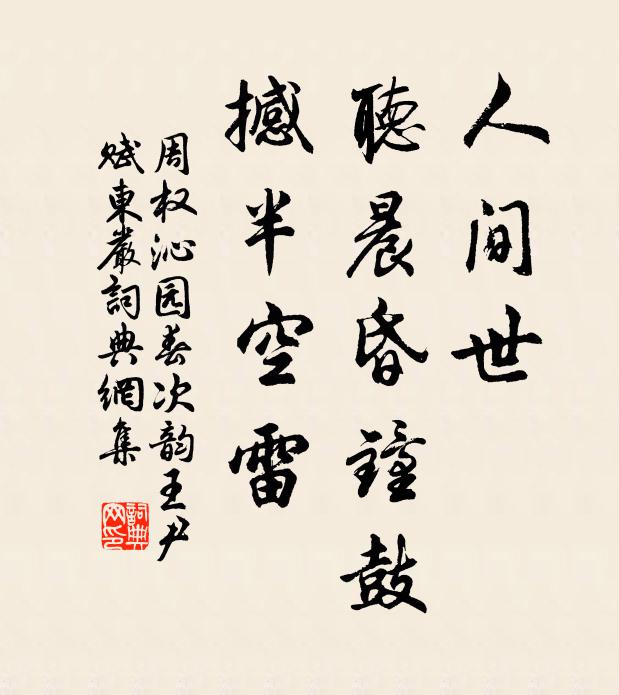 人间世
聽晨昏鐘鼓
撼半空雷
周权沁园春次韵王尹
赋東嚴詞典網集
詞典网印